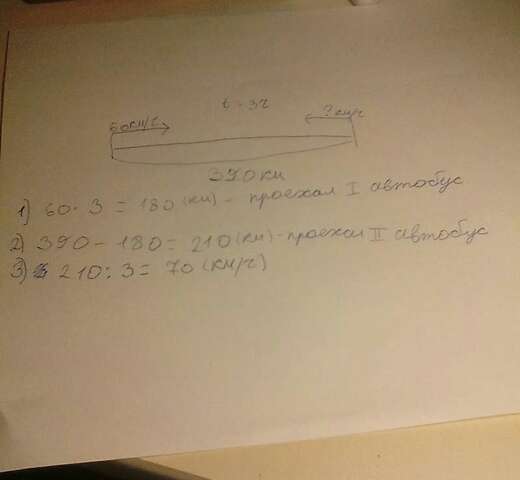 t = 3ч
60км/ч ? км/ч
390 км
1) 60 · 3 = 180 (км) - проехал I автобус
2) 390 - 180 = 210 (км) - проехал II автобус
3) 210 : 3 = 70 (км/ч)